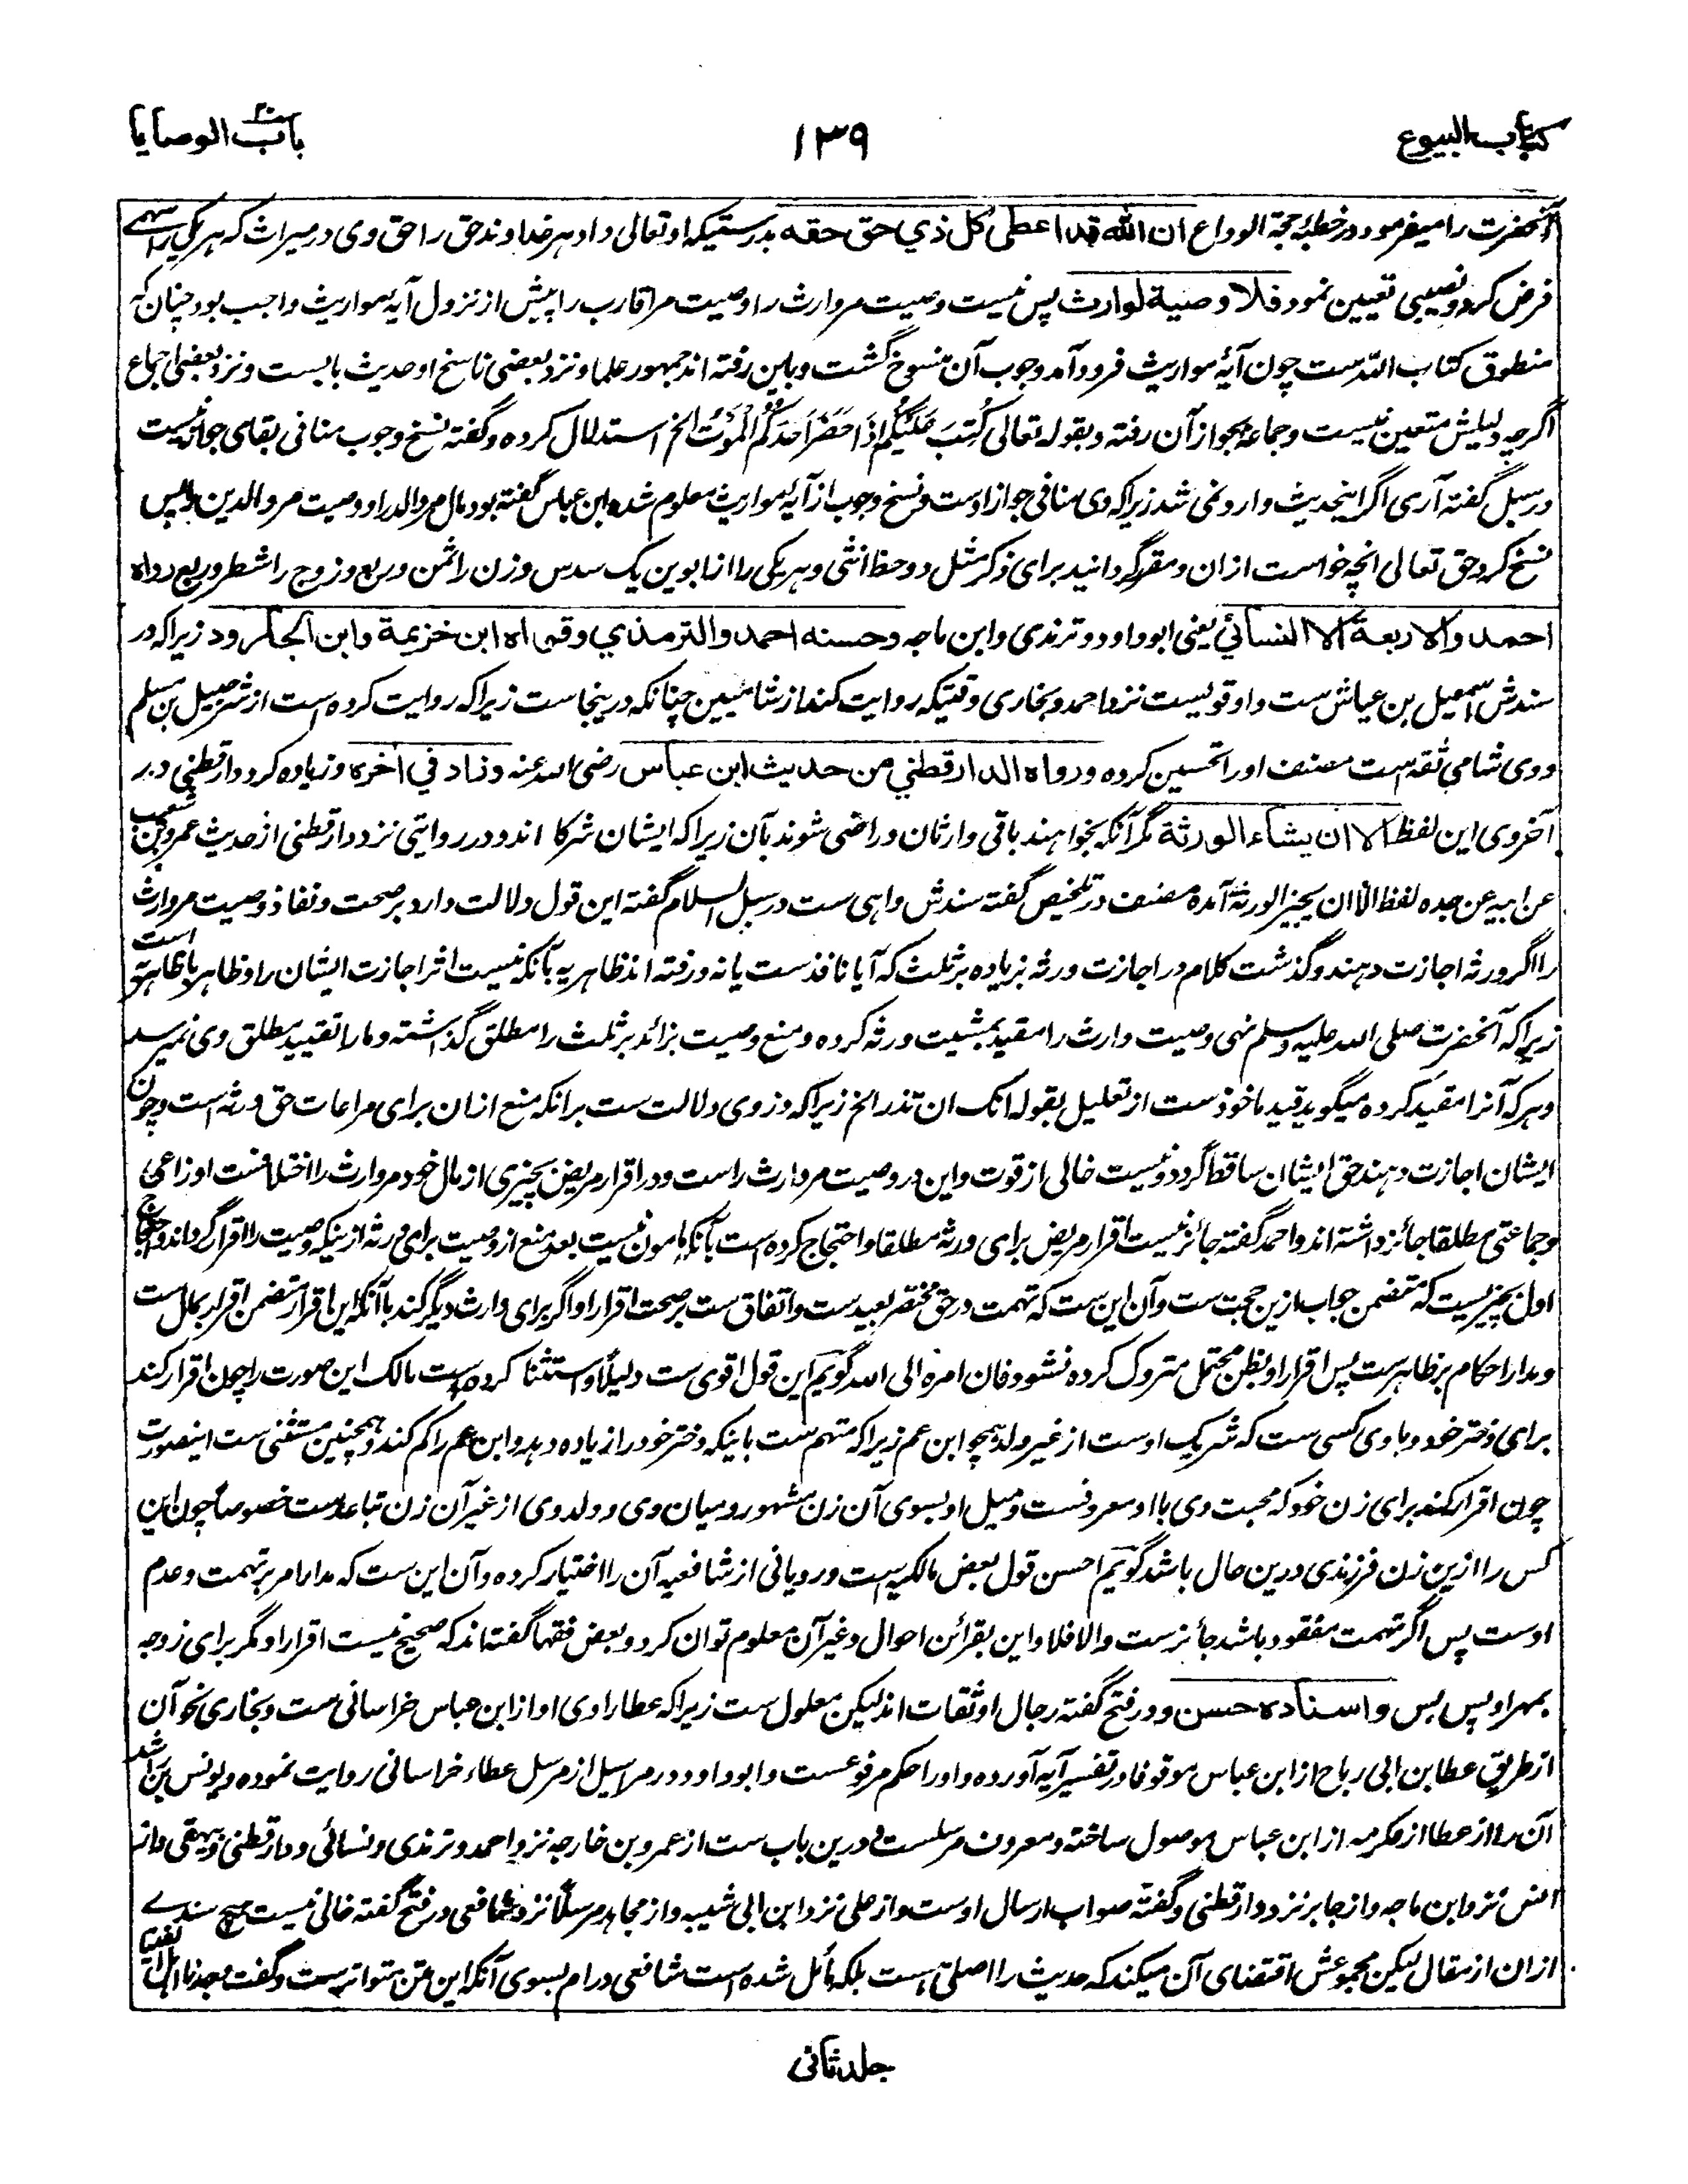 کتاب البیوع
۱۳۹
باب الوصایا
آنحضرت را میفرمود در خطبۂ حجة الوداع ان الله قد اعطی کل ذي حق حقه بدرستیکه او تعالی داد هر خداوند حق را حق وی در میراث که هر یکی را سهمے
فرض کرد و نصیبی تعیین نمود فلا وصیة لوارث پس نیست وصیت مر وارث را وصیت مر اقارب را پیش از نزول آیۂ مواریث واجب بود چنان که
منطوق کتاب الله ست چون آیۂ مواریث فرود آمد وجوب آن منسوخ گشت و باین رفته اند جمهور علما و نزد بعضی ناسخ او حدیث بابست و نزد بعضی اجماع
اگرچه دلیلش متعین نیست و جماعۂ بجواز آن رفته و بقوله تعالی کُتِبَ عَلَیْکُمْ اِذَا حَضَرَ اَحَدَکُمُ الْمَوْتُ الخ استدلال کرده و گفته نسخ وجوب منافی بقای جواز نیست
در سبل گفته آری اگر اینحدیث وارد نمی شد زیرا که وی منافی جواز اوست و نسخ وجوب از آیۂ مواریث معلوم شده ابن عباس گفته بود مال مر والد را و وصیت مر والدین را پس
نسخ کرد حق تعالی انچه خواست ازان و مقرر گردانید برای ذکر مثل دو حظ انثی و هر یکی را از ابوین یک سدس و زن را ثمن و ربع و زوج را شطر و ربع رواه
احمد والاربعة الا النسائي یعنی ابوداود و ترمذی و ابن ماجه و حسنه احمد والترمذي وقواه ابن خزیمة وابن الجارود زیرا که در
سندش اسمعیل بن عیاش ست و او قویست نزد احمد و بخاری وقتیکه روایت کند از شامیین چنانکه درینجاست زیرا که روایت کرده است از شرحبیل بن مسلم
و وی شامی ثقه است مصنف او را تحسین کرده ورواه الدارقطني من حدیث ابن عباس رضی الله عنه وزاد في اخره و زیاده کرد دارقطنی در
آخر وی این لفظ الا ان یشاء الورثة مگر آنکه بخواهند باقی وارثان و راضی شوند بآن زیرا که ایشان شرکا اند و در روایتی نزد دارقطنی از حدیث عمرو بن شعیب
عن ابیه عن جده لفظ الا ان یجیز الورثة آمده مصنف در تلخیص گفته سندش واهی ست در سبل السلام گفته این قول دلالت دارد بر صحت و نفاذ وصیت مر وارث
را اگر ورثه اجازت دهند و گذشت کلام در اجازت ورثه بزیاده بر ثلث که آیا نافذ ست یا نه و رفته اند ظاهریه بآنکه نیست اثر اجازت ایشان را و ظاهر با ظاهریه است
زیرا که آنحضرت صلی الله علیه وسلم نهی وصیت وارث را مقید بمشیت ورثه کرده و منع وصیت بزائد بر ثلث را مطلق گذاشته و ما را تقیید مطلق وی نمیرسد
و هر که آنرا مقید کرده میگوید قید ماخوذ ست از تعلیل بقوله انک ان تذر الخ زیرا که در وی دلالت ست برانکه منع ازان برای مراعات حق ورثه است و چون
ایشان اجازت دهند حق ایشان ساقط گردد و نیست خالی از قوت و این در وصیت مر وارث راست و در اقرار مریض بچیزی از مال خود مر وارث را اختلافست اوزاعی
و جماعتی مطلقا جائز داشته اند و احمد گفته جائز نیست اقرار مریض برای ورثه مطلقا و احتجاج کرده است بآنکه مامون نیست بعد منع از وصیت برای ورثه ازینکه وصیت را اقرار گرداند و احتجاج
اول بچیزیست که متضمن جواب ازین حجت ست و آن این ست که تهمت در حق محتضر بعید ست و اتفاق ست بر صحت اقرار او اگر برای وارث دیگر کند با آنکه این اقرار متضمن اقرار بمال ست
و مدار احکام بر ظاهر ست پس اقرار او بظن محتمل متروک کرده نشود فان امره الی الله گویم این قول اقوی ست دلیلاً و استثنا کرده است مالک این صورت را چون اقرار کند
برای دختر خود و با وی کسی ست که شریک اوست از غیر ولد همچو ابن عم زیرا که متهم ست باینکه دختر خود را زیاده دهد و ابن عم را کم کند و همچنین مستثنی ست اینصورت
چون اقرار کند برای زن خود که محبت وی با او معروفست و میل او بسوی آن زن مشهور و میان وی و ولد وی از غیر آن زن تباعدست خصوصاً چون این
کس را ازین زن فرزندی درین حال باشد گویم احسن قول بعض مالکیه است و رویانی از شافعیه آن را اختیار کرده و آن این ست که مدار امر بر تهمت و عدم
اوست پس اگر تهمت مفقود باشد جائز ست والا فلا و این بقرائن احوال و غیر آن معلوم توان کرد و بعض فقها گفته اند که صحیح نیست اقرار او مگر برای زوجه
بمهر او پس بس واسناده حسن و در فتح گفته رجال او ثقات اند لیکن معلول ست زیرا که عطا راوی او از ابن عباس خراسانی ست و بخاری نحو آن
از طریق عطا بن ابی رباح از ابن عباس موقوفا در تفسیر آیه آورده و او را حکم مرفوعست و ابوداود در مراسیل از مرسل عطاء خراسانی روایت نموده و یونس بن راشد
آن را از عطا از عکرمه از ابن عباس موصول ساخته و معروف مرسلست و درین باب ست از عمرو بن خارجه نزد احمد و ترمذی و نسائی و دارقطنی و بیهقی و از
انس نزد ابن ماجه و از جابر نزد دارقطنی و گفته صواب ارسال اوست و از علی نزد ابن ابی شیبه و از مجاهد مرسلاً نزد شافعی در فتح گفته خالی نیست هیچ سندے
ازان از مقال لیکن مجموعش اقتضای آن میکند که حدیث را اصلی هست بلکه مائل شده است شافعی در ام بسوی آنکه این متن متواتر ست و گفت وجدنا اهل الفتیا
جلد ثانی